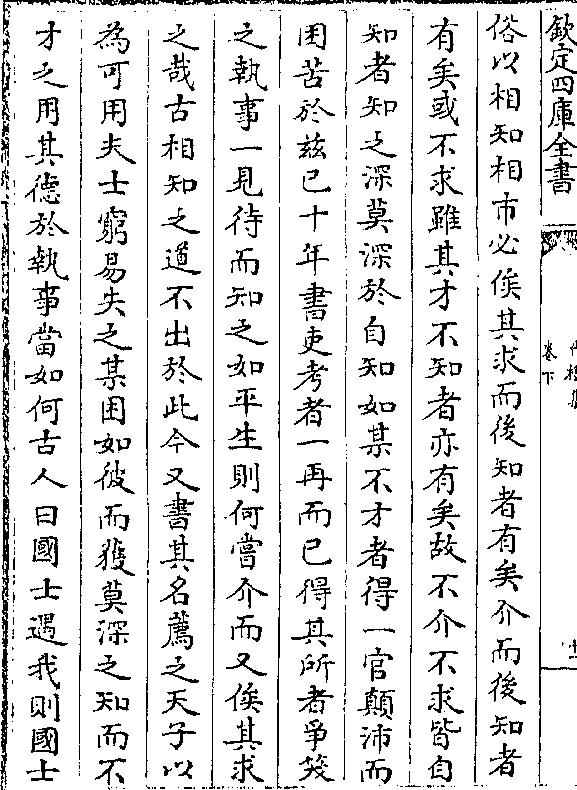 欽定四庫全書
卷下
俗以相知相市必俟其求而後知者有矣介而後知者
有矣或不求雖其才不知者亦有矣故不介不求皆自
知者知之深莫深於自知如某不才者得一官顛沛而
困苦於兹已十年書吏考者一再而已得其所者爭笺
之執事一見待而知之如平生則何嘗介而又俟其求
之哉古相知之道不出於此今又書其名薦之天子以
為可用夫士窮易失之某困如彼而獲莫深之知而不
才之用其德於執事當如何古人曰國士遇我則國士